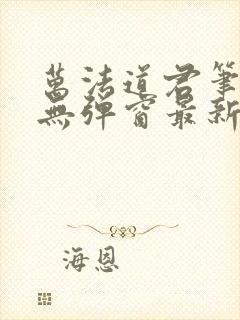 萬法道君筆
無彈窗最新
海恩